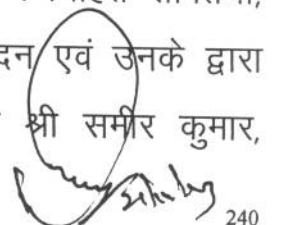 दन एवं उनके द्वारा
श्री समीर कुमार,
240